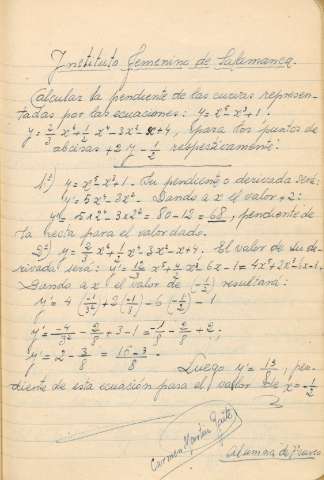 Instituto Femenino de Salamanca.
Calcular la pendiente de las curvas represen-
tadas por las ecuaciones: y=x⁵-x³+1.
y=2/3 x⁶+1/2 x⁴-3x²-x+4, para los puntos de
abcisas +2 y -1/2 respectivamente:
1ª) y=x⁵-x³+1. Su pendiente o derivada será:
y'=5x⁴-3x². Dando a x el valor +2:
y'=5·2⁴-3·2²=80-12=68, pendiente de
la recta para el valor dado.
2ª) y=2/3 x⁶+1/2 x⁴-3x²-x+4. El valor de su de-
rivada será: y'=12/3 x⁵+4/2 x³-6x-1=4x⁵+2x³-6x-1.
Dando a x el valor de (-1/2) resultará:
y'=4(-1/32)+2(-1/8)-6(-1/2)-1
y'=-4/32-2/8+3-1=-1/8-2/8+2.
y'=2-3/8=16-3/8.
Luego y'=13/8, pen-
diente de esta ecuación para el valor de x=-1/2
Carmen Martín Gaite
Alumna de 7º curso